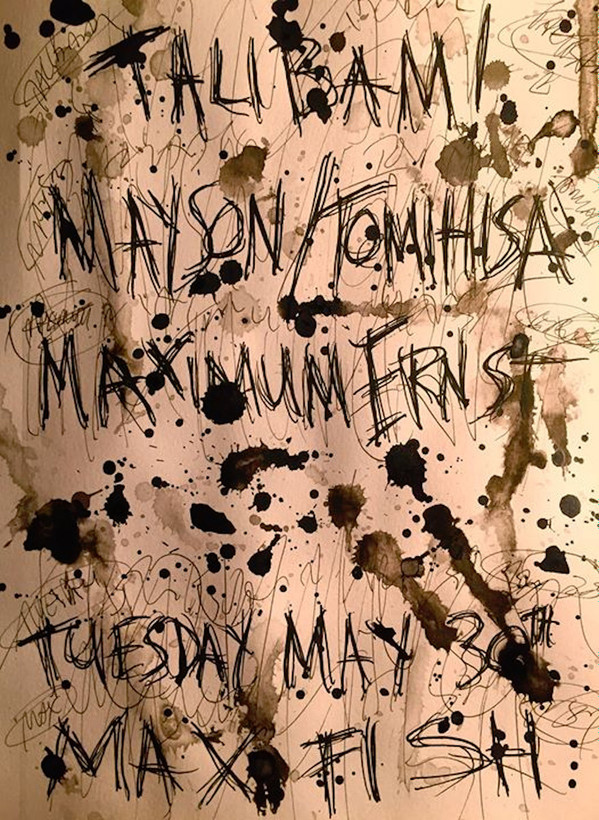 TALIBAM!
MAYSON/TOMIHISA
MAXIMUM ERNST
TUESDAY MAY 30TH
MAX FISH